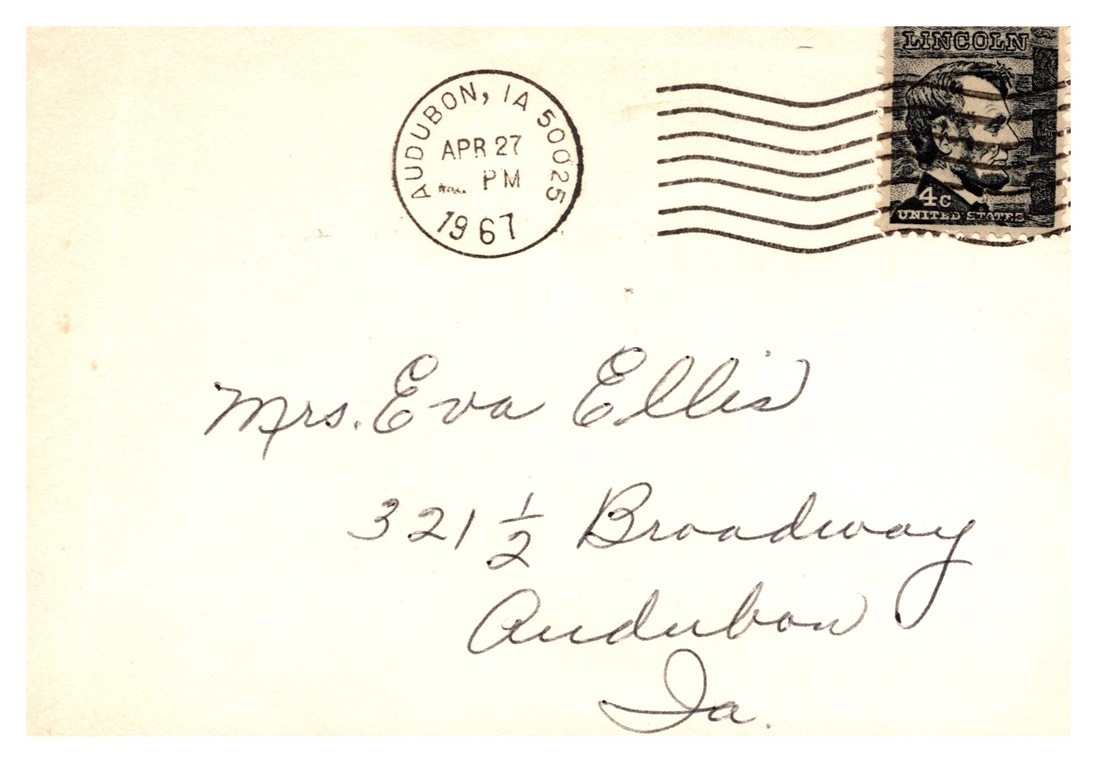 AUDUBON, IA 50025
APR 27
PM
1967
LINCOLN
4c
UNITED STATES
Mrs. Eva Ellis
321 1/2 Broadway
Audubon
Ia.